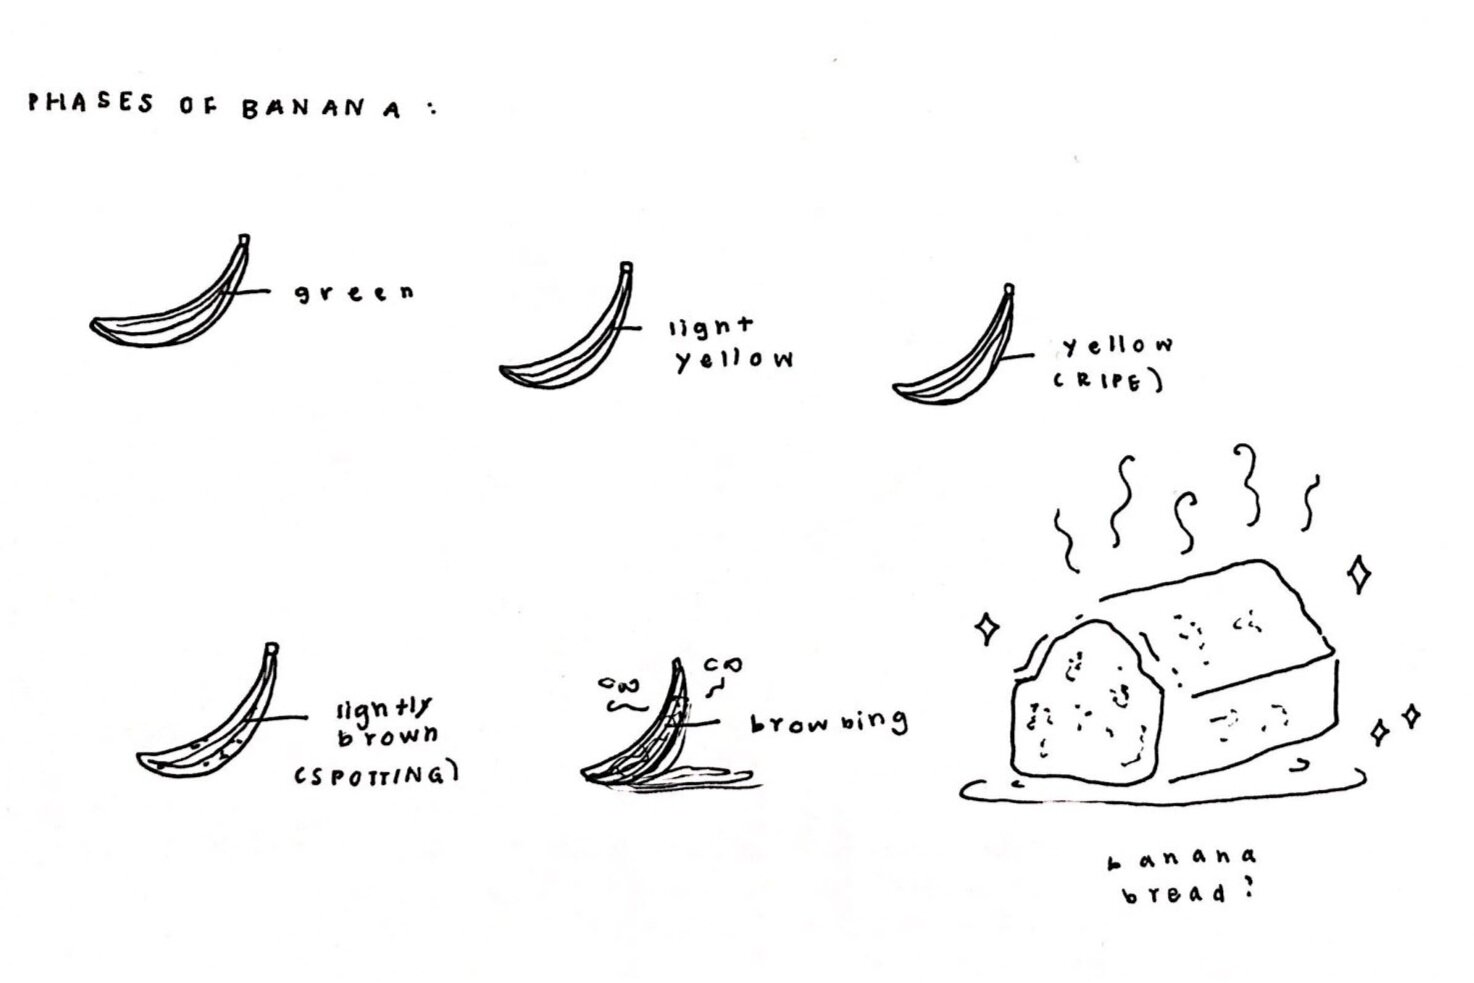 PHASES OF BANANA:
green
light
yellow
yellow
(RIPE)
lightly
brown
(SPOTTING)
browning
banana
bread?